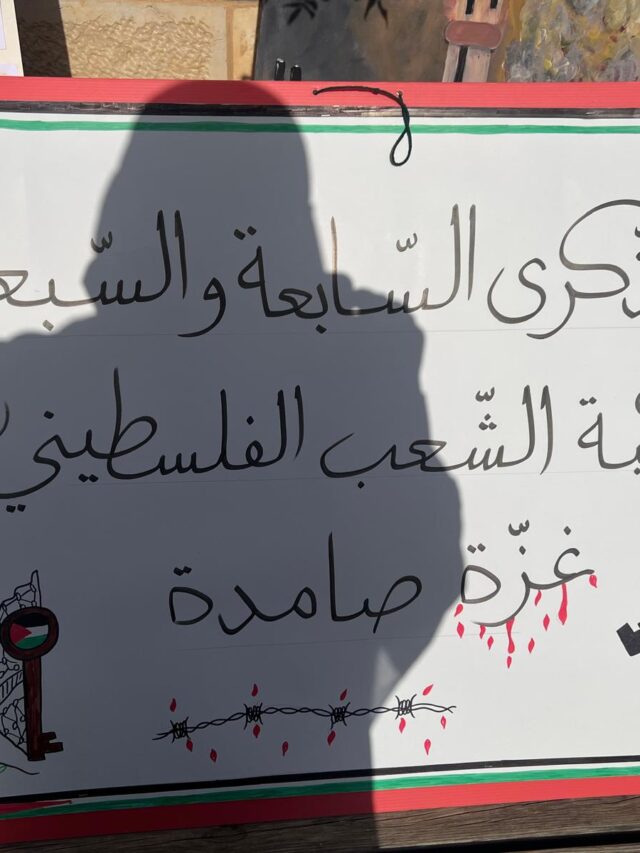 ذكرى السّابعة والسّبع
بة الشّعب الفلسطيني
غزّة صامدة